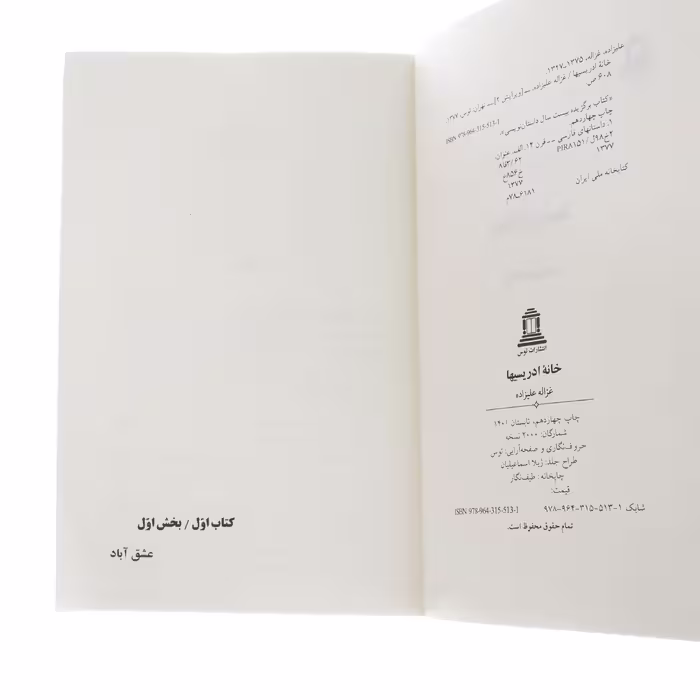 علیزاده، غزاله، ۱۳۷۵-۱۳۲۷.
خانهٔ ادریسیها / غزاله علیزاده. -- [ویرایش ۲] -- تهران: توس، ۱۳۷۷.
۶۰۸ ص.
ISBN 978-964-315-513-1
«کتاب برگزیده بیست سال داستان‌نویسی».
چاپ چهاردهم.
۱. داستانهای فارسی -- قرن ۱۴. الف. عنوان.
۱۳۷۷
۸فا۳/۶۲
خ۸۵۶ع
۱۳۷۷
کتابخانه ملی ایران
۶۱۸۱-۷۸م
انتشارات توس
خانهٔ ادریسیها
غزاله علیزاده
چاپ چهاردهم، تابستان ۱۴۰۱
شمارگان: ۲۰۰۰ نسخه
حروف‌نگاری و صفحه‌آرایی: توس
طراح جلد: ژیلا اسماعیلیان
چاپخانه: طیف‌نگار
قیمت:
شابک ۱-۵۱۳-۳۱۵-۹۶۴-۹۷۸ ISBN 978-964-315-513-1
تمام حقوق محفوظ است.
کتاب اوّل / بخش اوّل
عشق آباد